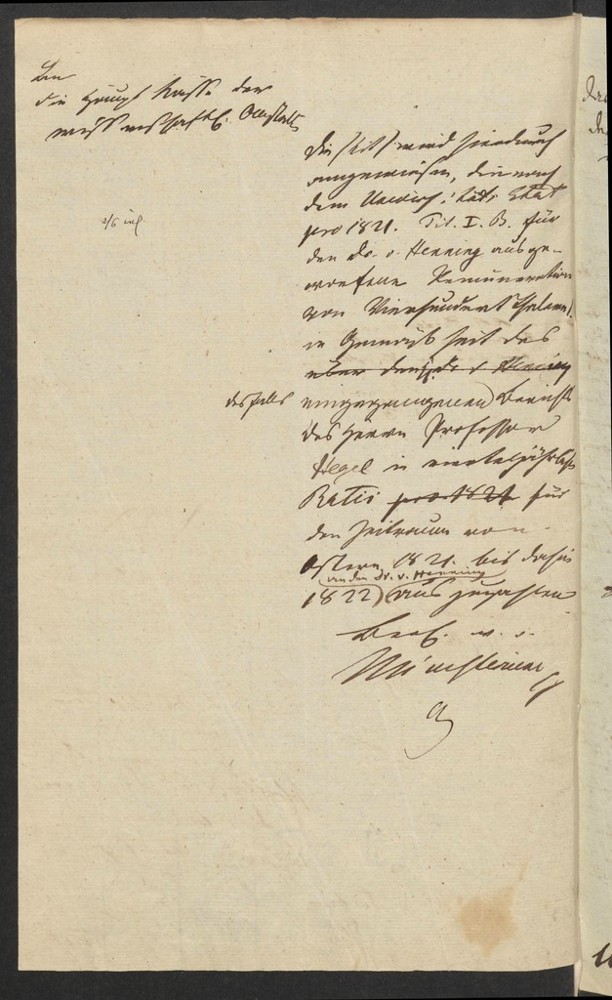 An
die Haupt Kasse der
wissenschaftl. Anstalten
Die Kasse wird hierdurch
angewiesen, die nach
dem Universitäts Etat
pro 1821. Tit. I. B. für
den Dr. v. Henning ausge-
worfene Remuneration
von Vierhundert Thalern
in
über den Dr. v. Henning
desfalls eingegangenen Bericht
des Herrn Professor
Hegel in vierteljährlichen
Ratis pro 1821 für
den Zeitraum von
Ostern 1821. bis dahin
an den Dr. v. Henning
1822 auszuzahlen
Berl. w. o.
Ministerium